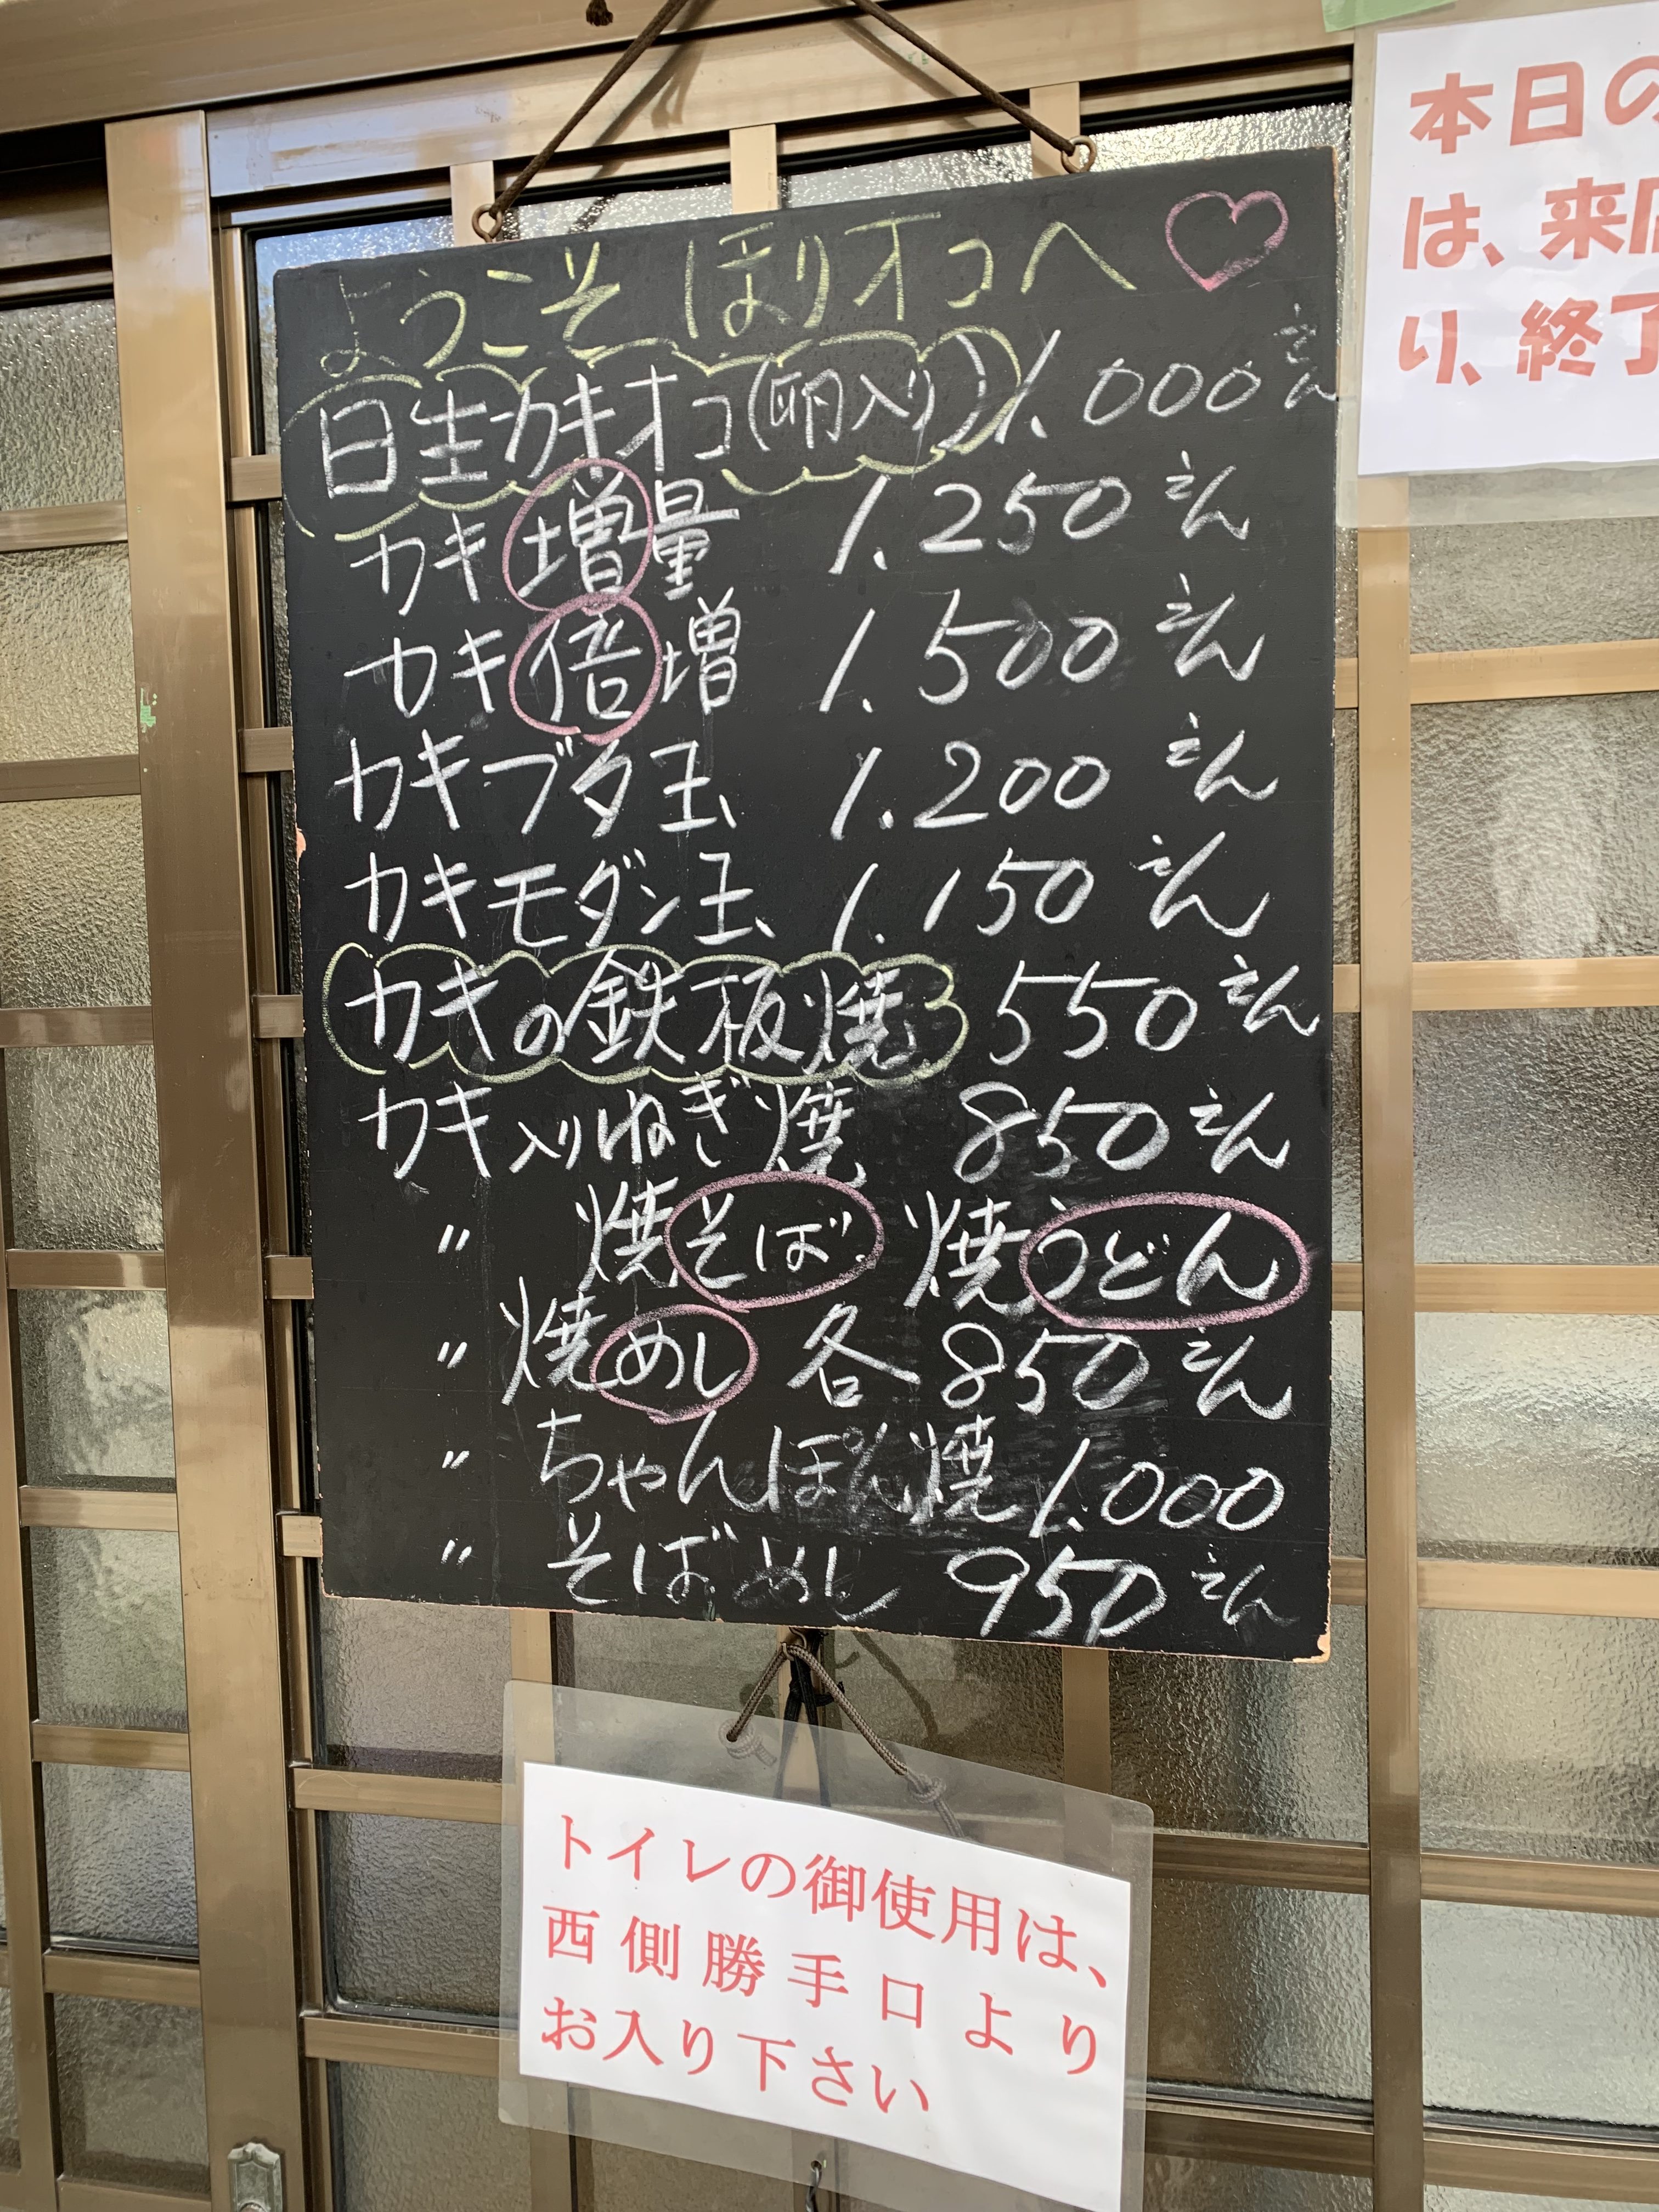 ようこそ ほりオコへ
日生カキオコ(卵入り) 1.000えん
カキ増量 1.250えん
カキ倍増 1.500えん
カキブタ玉 1.200えん
カキモダン玉 1.150えん
カキの鉄板焼 550えん
カキ入りねぎ焼 850えん
〃 焼そば 焼うどん
〃 焼めし 各850えん
〃 ちゃんぽん焼 1.000
〃 そばめし 950えん
本日の
は、来店
り、終了
トイレの御使用は、
西側勝手口より
お入り下さい